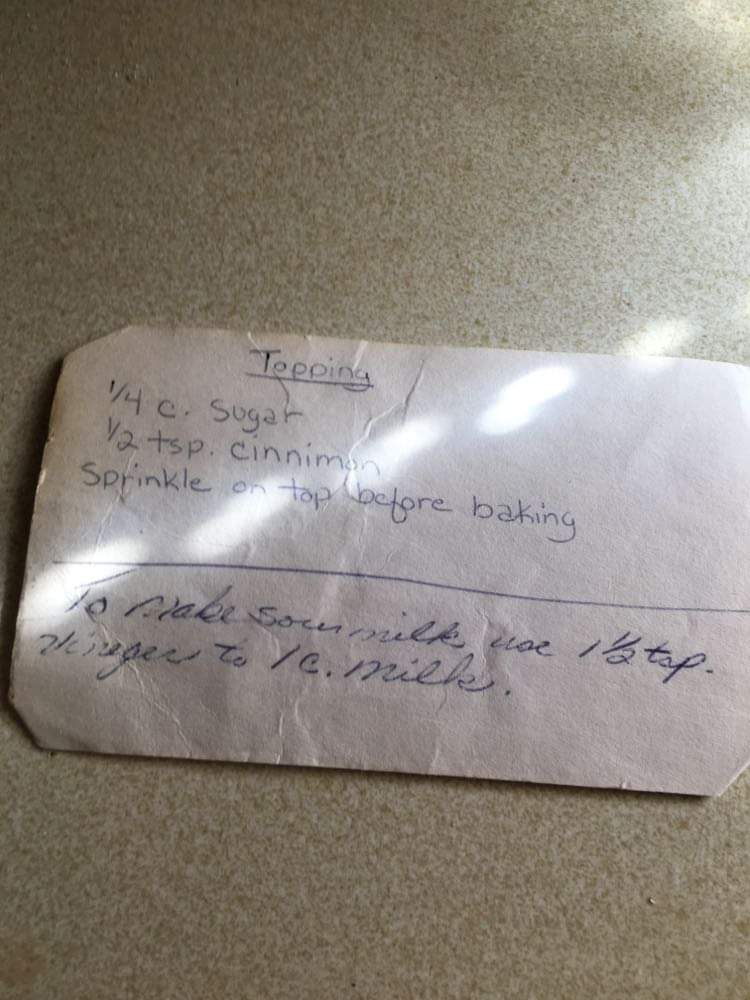 Topping
1/4 c. Sugar
1/2 tsp. cinnimon
Sprinkle on top before baking
To make sour milk use 1 1/2 tsp.
vineger to 1 c. milk.